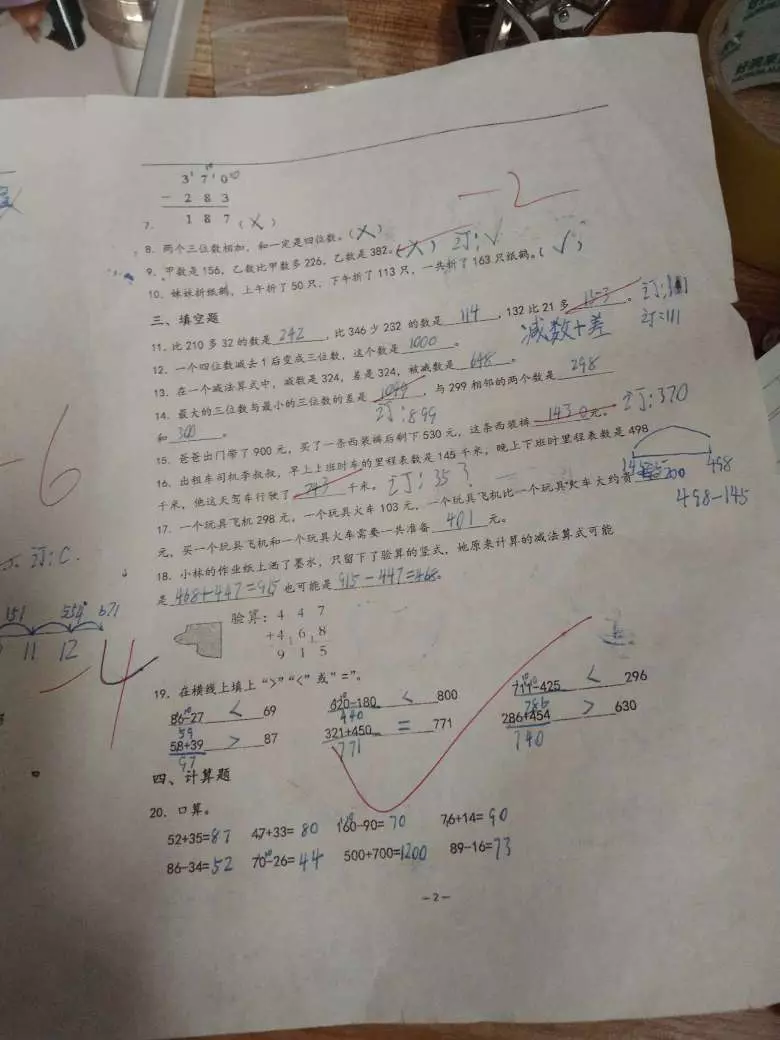 3 7 0
- 2 8 3
7. 1 8 7 (X)
8. 两个三位数相加，和一定是四位数。(X)
-2
9. 甲数是 156，乙数比甲数多 226，乙数是 382。(X) 订:√
10. 妹妹折纸鹤，上午折了 50 只，下午折了 113 只，一共折了 163 只纸鹤。(√)
三、填空题
11. 比 210 多 32 的数是 242，比 346 少 232 的数是 114，132 比 21 多 。 订=111
12. 一个四位数减去 1 后变成三位数，这个数是 1000。 减数+差
13. 在一个减法算式中，减数是 324，差是 324，被减数是 648。
14. 最大的三位数与最小的三位数的差是 ，与 299 相邻的两个数是 298
订:899
和 300。
15. 爸爸出门带了 900 元，买了一条西装裤后剩下 530 元，这条西装裤 1430 元。 订:370
16. 出租车司机李叔叔，早上上班时车的里程表数是 145 千米，晚上下班时里程表数是 498
千米，他这天驾车行驶了 243 千米。 订:353
498
200
498-145
17. 一个玩具飞机 298 元，一个玩具火车 103 元，一个玩具飞机比一个玩具火车大约贵
元，买一个玩具飞机和一个玩具火车需要一共准备 401 元。
18. 小林的作业纸上洒了墨水，只留下了验算的竖式，她原来计算的减法算式可能
是 468+447=915 也可能是 915-447=468。
验算：4 4 7
+4 6 8
9 1 5
19. 在横线上填上“>”“<”或“=”。
86-27 < 69 620-180 < 800 711-425 < 296
59 440 286
58+39 > 87 321+450 = 771 286+454 > 630
97 771 740
四、计算题
20. 口算。
52+35=87 47+33=80 160-90=70 76+14=90
86-34=52 70-26=44 500+700=1200 89-16=73
-2-
-6
订:C.
151 554 671
11 12
-4